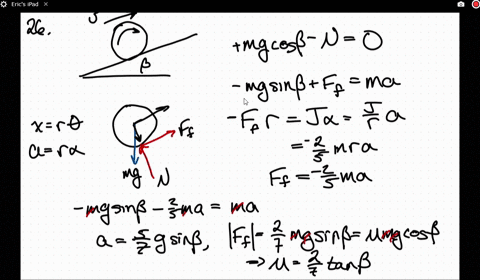 Eric's iPad
26.
β
+mgcosβ - N = 0
-mgsinβ + F_f = ma
x = rθ
a = rα
F_f
mg
N
-F_f r = Jα = J/r a
= -2/5 mra
F_f = -2/5 ma
-mgsinβ - 2/5 ma = ma
a = 5/7 gsinβ, |F_f| = 2/7 mgsinβ = μmgcosβ
→ μ = 2/7 tanβ